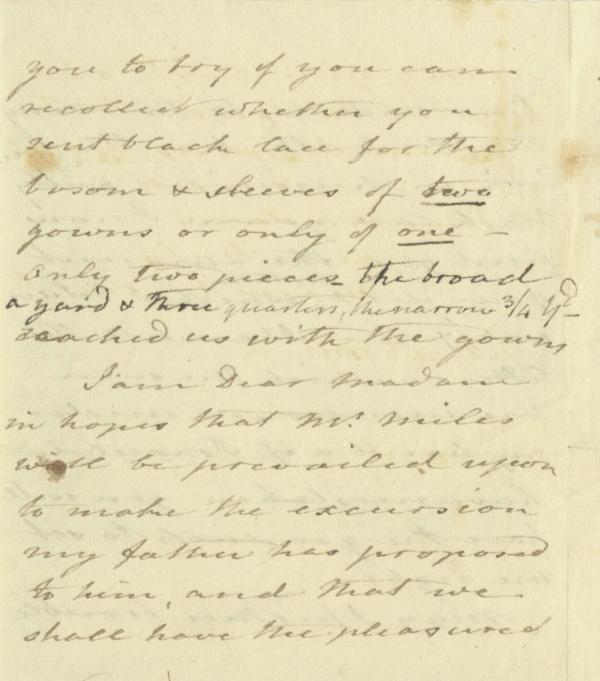 you to try if you can
recollect whether you
sent black lace for the
bosom & sleeves of two
gowns or only of one —
only two pieces – the broad
a yard & three quarters, the narrow 3/4 Yd –
reached us with the gowns
I am Dear Madam
in hopes that Mr. Miles
will be prevailed upon
to make the excursion
my father has proposed
to him, and that we
shall have the pleasure